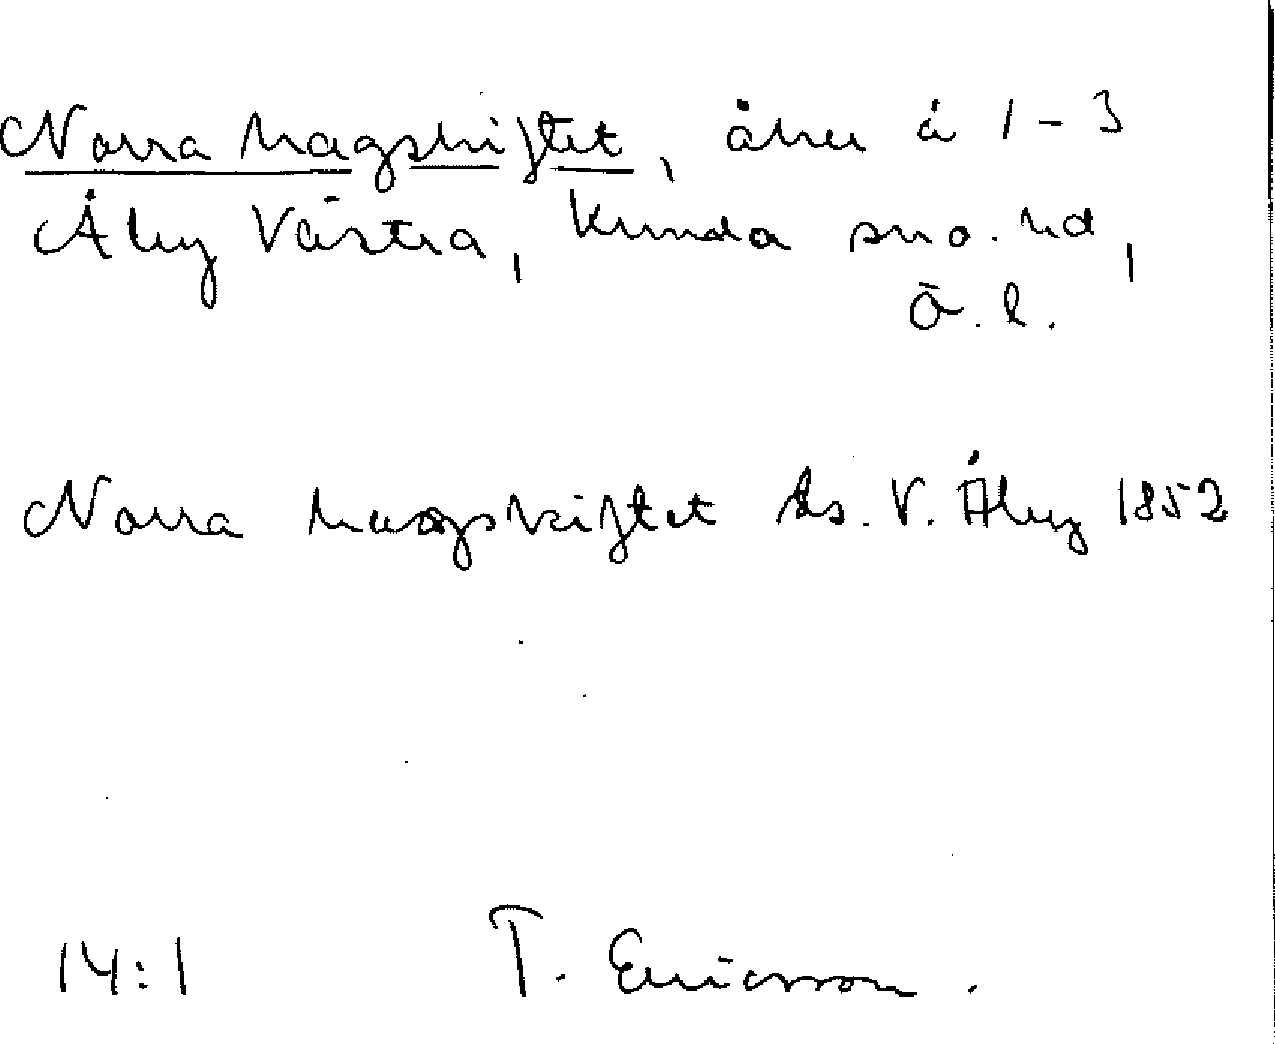 Norra hagskiftet, åker å 1-3
Åby Västra, Kumla sn o. hd,
Ö. l.
Norra hagskiftet Ls. V. Åby 1852
14:1 T. Ericsson.